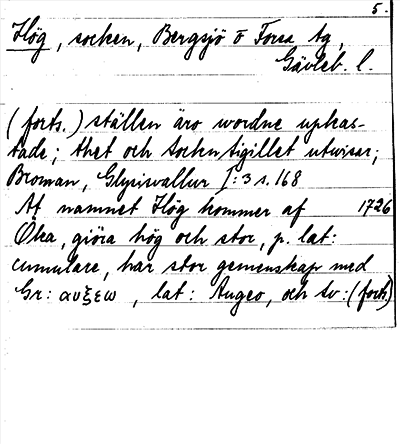 5.
Hög, socken, Bergsjö o Forsa tg,
Gävleb. l.
(forts.) ställen äro wordne uphas-
tade; thet och Sockntigillet utwisar;
Broman, Glysisvallur I:3 s. 168
Af namnet Hög kommer af 1726
Öka, giöra hög och stor, p. lat:
cumulare, har stor gemenskap med
Gr: αυξεω, lat: Augeo, och Sv: (forts)